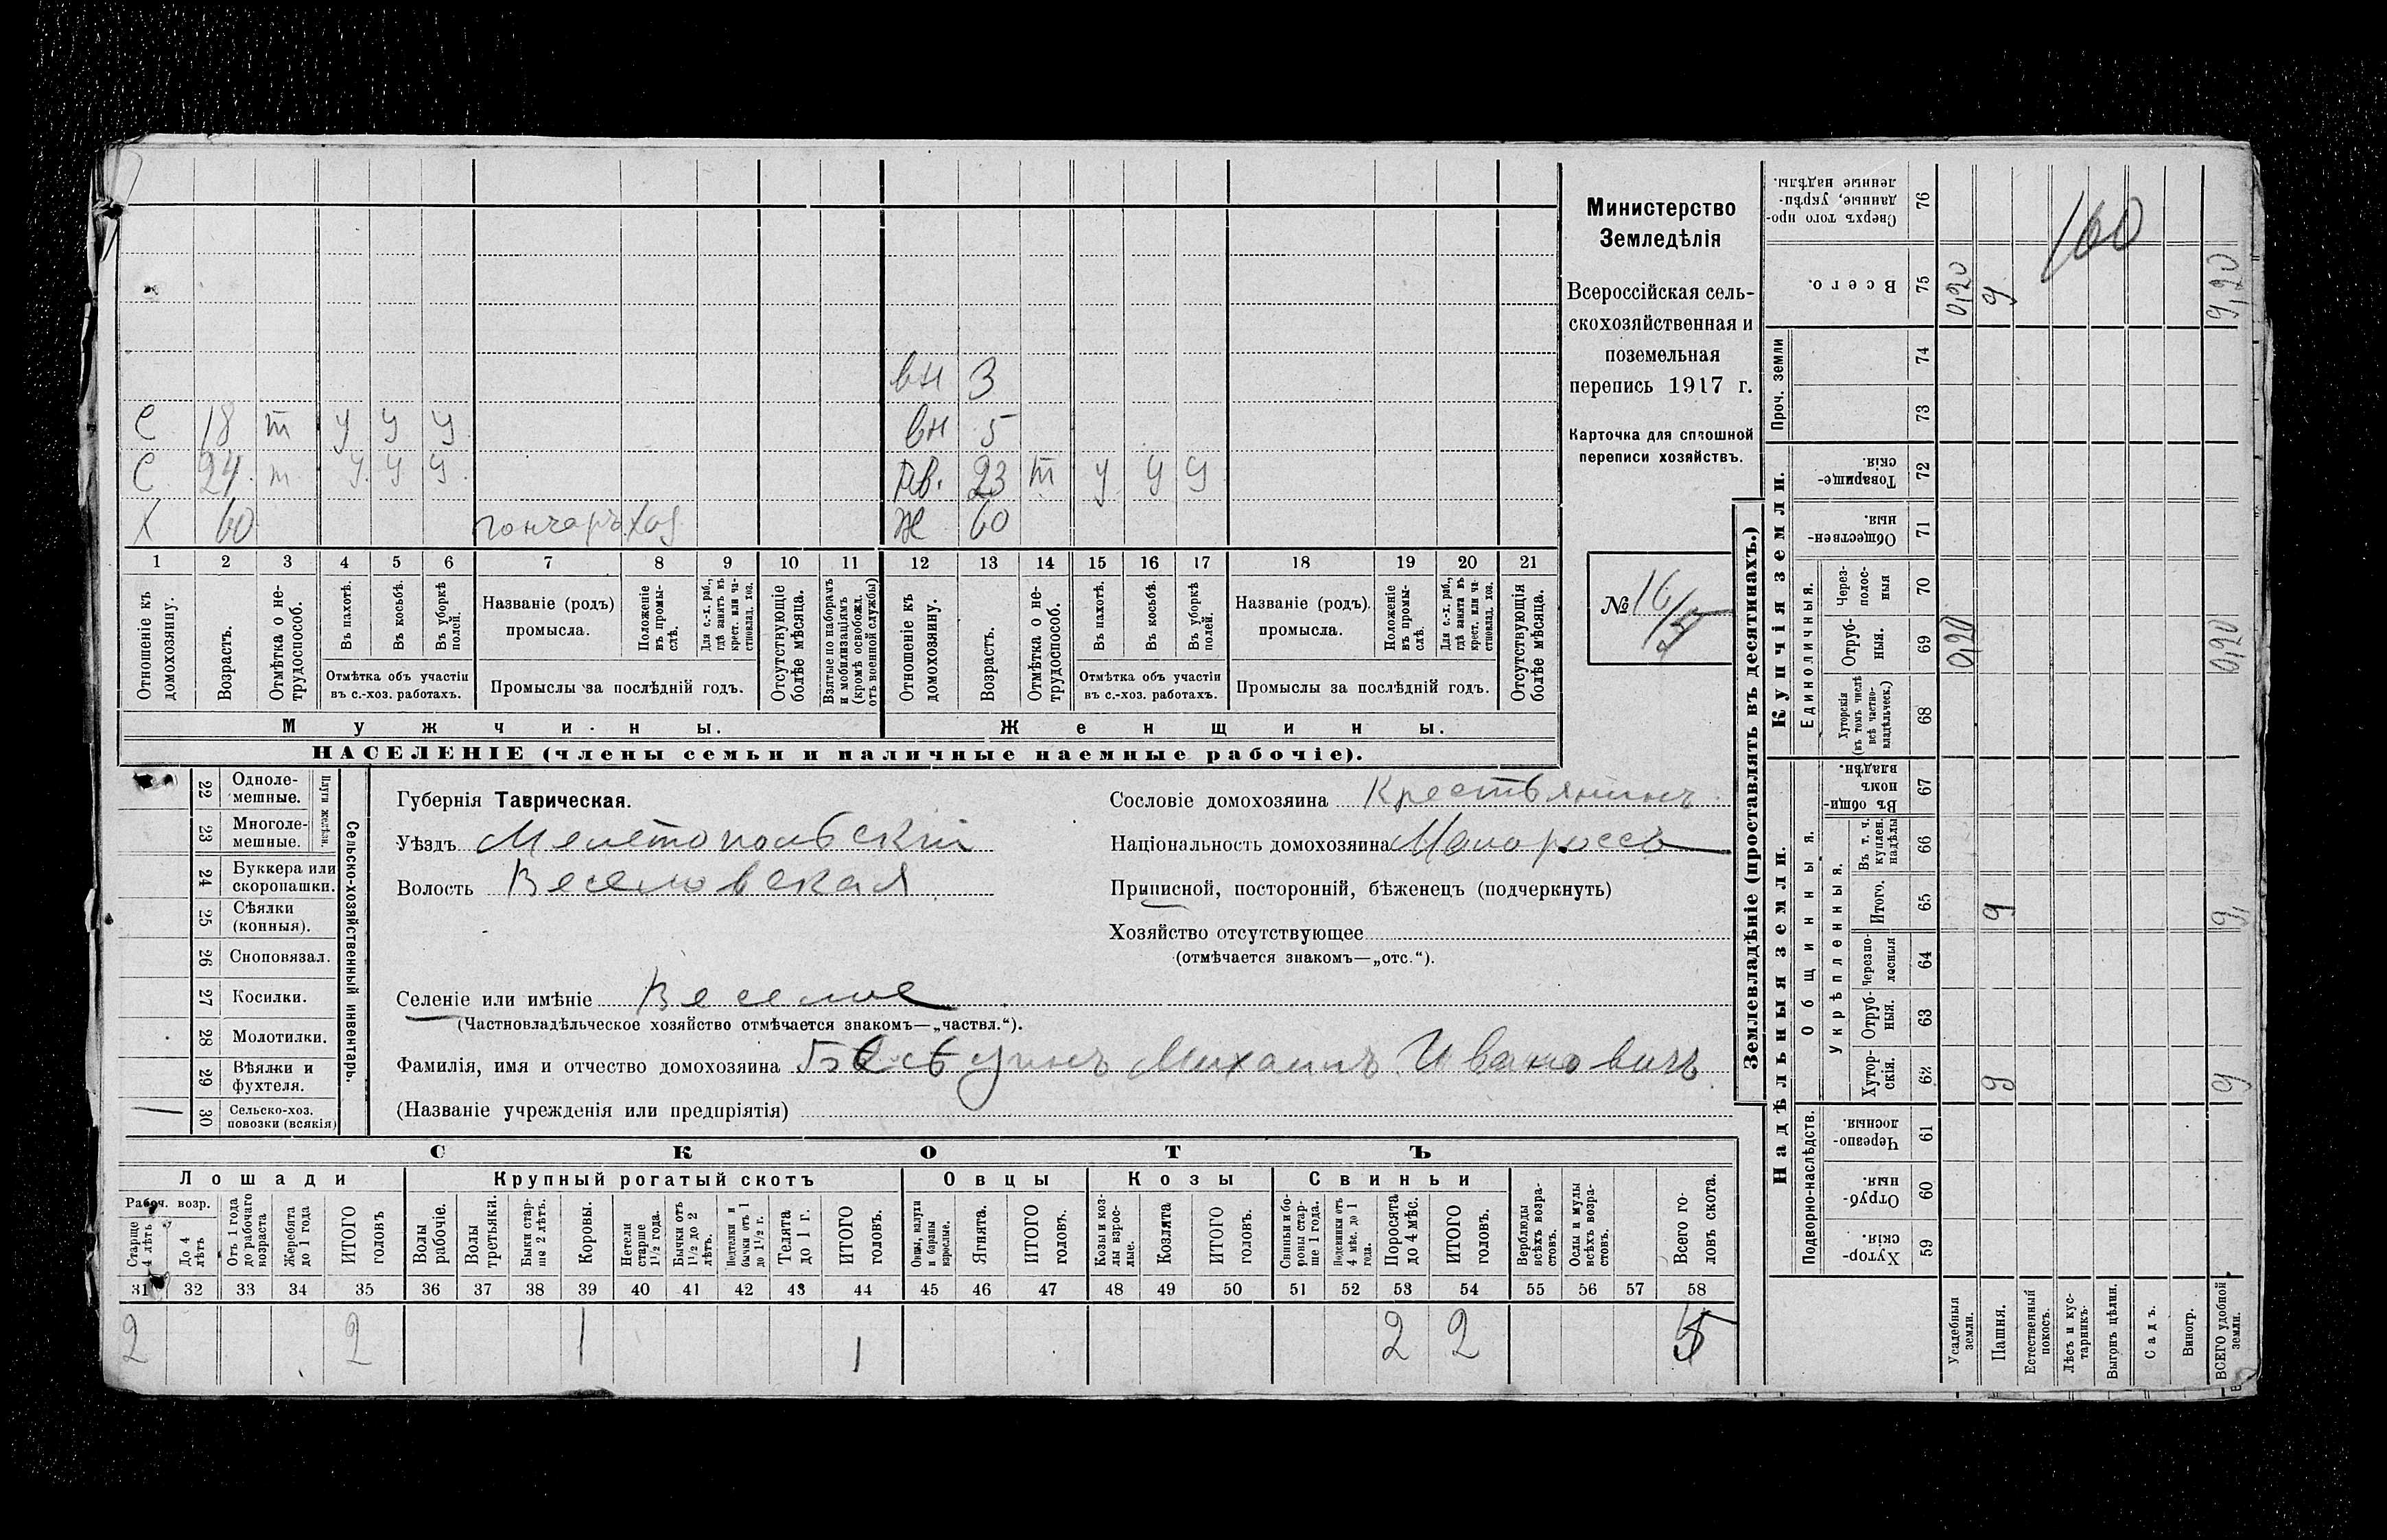 вн 3
С 18 т у у у вн 5
С 24 т у у у нв. 23 т у у у
Х 60 гончаръ хоз Ж 60
1 2 3 4 5 6 7 8 9 10 11 12 13 14 15 16 17 18 19 20 21
Отношеніе къ домохозяину.
Возрастъ.
Отмѣтка о не-
трудоспособ.
Въ пахотѣ.
Въ косьбѣ.
Въ уборкѣ
полей.
Отмѣтка объ участіи
въ с.-хоз. работахъ.
Названіе (родъ)
промысла.
Положеніе
въ промы-
слѣ.
Для с.-х. раб.,
гдѣ занятъ въ
крест. или ча-
стновлад. хоз.
Промыслы за послѣдній годъ.
Отсутствующіе
болѣе мѣсяца.
Взятые по наборамъ
и мобилизаціямъ
(кромѣ освобожд.
отъ военной службы)
Отношеніе къ
домохозяину.
Возрастъ.
Отмѣтка о не-
трудоспособ.
Въ пахотѣ.
Въ косьбѣ.
Въ уборкѣ
полей.
Отмѣтка объ участіи
въ с.-хоз. работахъ.
Названіе (родъ).
промысла.
Положеніе
въ промы-
слѣ.
Для с.-х. раб.,
гдѣ занята въ
крест. или ча-
стновлад. хоз.
Промыслы за послѣдній годъ.
Отсутствующія
болѣе мѣсяца.
Мужчины. Женщины.
НАСЕЛЕНІЕ (члены семьи и наличные наемные рабочіе).
Министерство
Земледѣлія
Всероссійская сель-
скохозяйственная и
поземельная
перепись 1917 г.
Карточка для сплошной
переписи хозяйствъ.
№ 16/5
22 Одноле-
мешные.
23 Многоле-
мешные.
Плуги желѣзн.
24 Буккера или
скоропашки.
25 Сѣялки
(конныя).
26 Сноповязал.
27 Косилки.
28 Молотилки.
29 Вѣялки и
фухтеля.
1 30 Сельско-хоз.
повозки (всякія)
Сельско-хозяйственный инвентарь.
Губернія Таврическая.
Уѣздъ Мелитопольскій
Волость Веселовская
Сословіе домохозяина Крестьянинъ
Національность домохозяина Малороссъ
Приписной, посторонній, бѣженецъ (подчеркнуть)
Хозяйство отсутствующее
(отмѣчается знакомъ—„отс.“).
Селеніе или имѣніе Веселое
(Частновладѣльческое хозяйство отмѣчается знакомъ—„частвл.“).
Фамилія, имя и отчество домохозяина Михаилъ Ивановичъ
(Названіе учрежденія или предпріятія)
СКОТЪ
Лошади Крупный рогатый скотъ Овцы Козы Свиньи
Рабоч. возр.
Старше
4 лѣтъ
До 4
лѣтъ
Отъ 1 года
до рабочаго
возраста
Жеребята
до 1 года
ИТОГО
головъ
Волы
рабочіе.
Волы
третьяки.
Быки стар-
ше 2 лѣтъ.
Коровы.
Нетели
старше
1½ года.
Бычки отъ
1½ до 2
лѣтъ.
Подтелки и
бычки отъ 1
до 1½ г.
Телята
до 1 г.
ИТОГО
головъ.
Овцы, валухи
и бараны
взрослые.
Ягнята.
ИТОГО
головъ.
Козы и коз-
лы взрос-
лые.
Козлята
ИТОГО
головъ.
Свиньи и бо-
ровы стар-
ше 1 года.
Подсвинки отъ
4 мѣс. до 1
года.
Поросята
до 4 мѣс.
ИТОГО
головъ.
Верблюды
всѣхъ возра-
стовъ.
Ослы и мулы
всѣхъ возра-
стовъ.
Всего го-
ловъ скота.
31 32 33 34 35 36 37 38 39 40 41 42 43 44 45 46 47 48 49 50 51 52 53 54 55 56 57 58
2 2 1 1 2 2 5
Землевладѣніе (проставлять въ десятинахъ.)
Купчія земли.
Надѣльныя земли.
Сверхъ того про-
данные, укрѣп-
ленные надѣлы.
76
160
Всего.
75 0,20 9 9,20
Проч. земли
74
73
Товарище-
скія.
72
Обществен-
ныя.
71
Единоличныя.
Через-
полос-
ныя
70
Отруб-
ныя.
69 0,20 0,20
Хуторскія
(въ томъ числѣ
всѣ частно-
владѣльческ.)
68
Общинныя.
Въ общи-
номъ
владѣн.
67
Укрѣпленныя.
Въ т. ч.
куплен.
надѣлы
66
Итого.
65 9 9,
Черезпо-
лосныя
64
Отруб-
ныя.
63
Хутор-
скія.
62 9 9
Подворно-наслѣдств.
Черезпо-
лосныя.
61
Отруб-
ныя.
60
Хутор-
скія.
59
Усадебныя
земли.
Пашня.
Естественный
покосъ.
Лѣсъ и кус-
тарникъ.
Выгонъ цѣлин.
Садъ.
Виногр.
ВСЕГО удобной
земли.